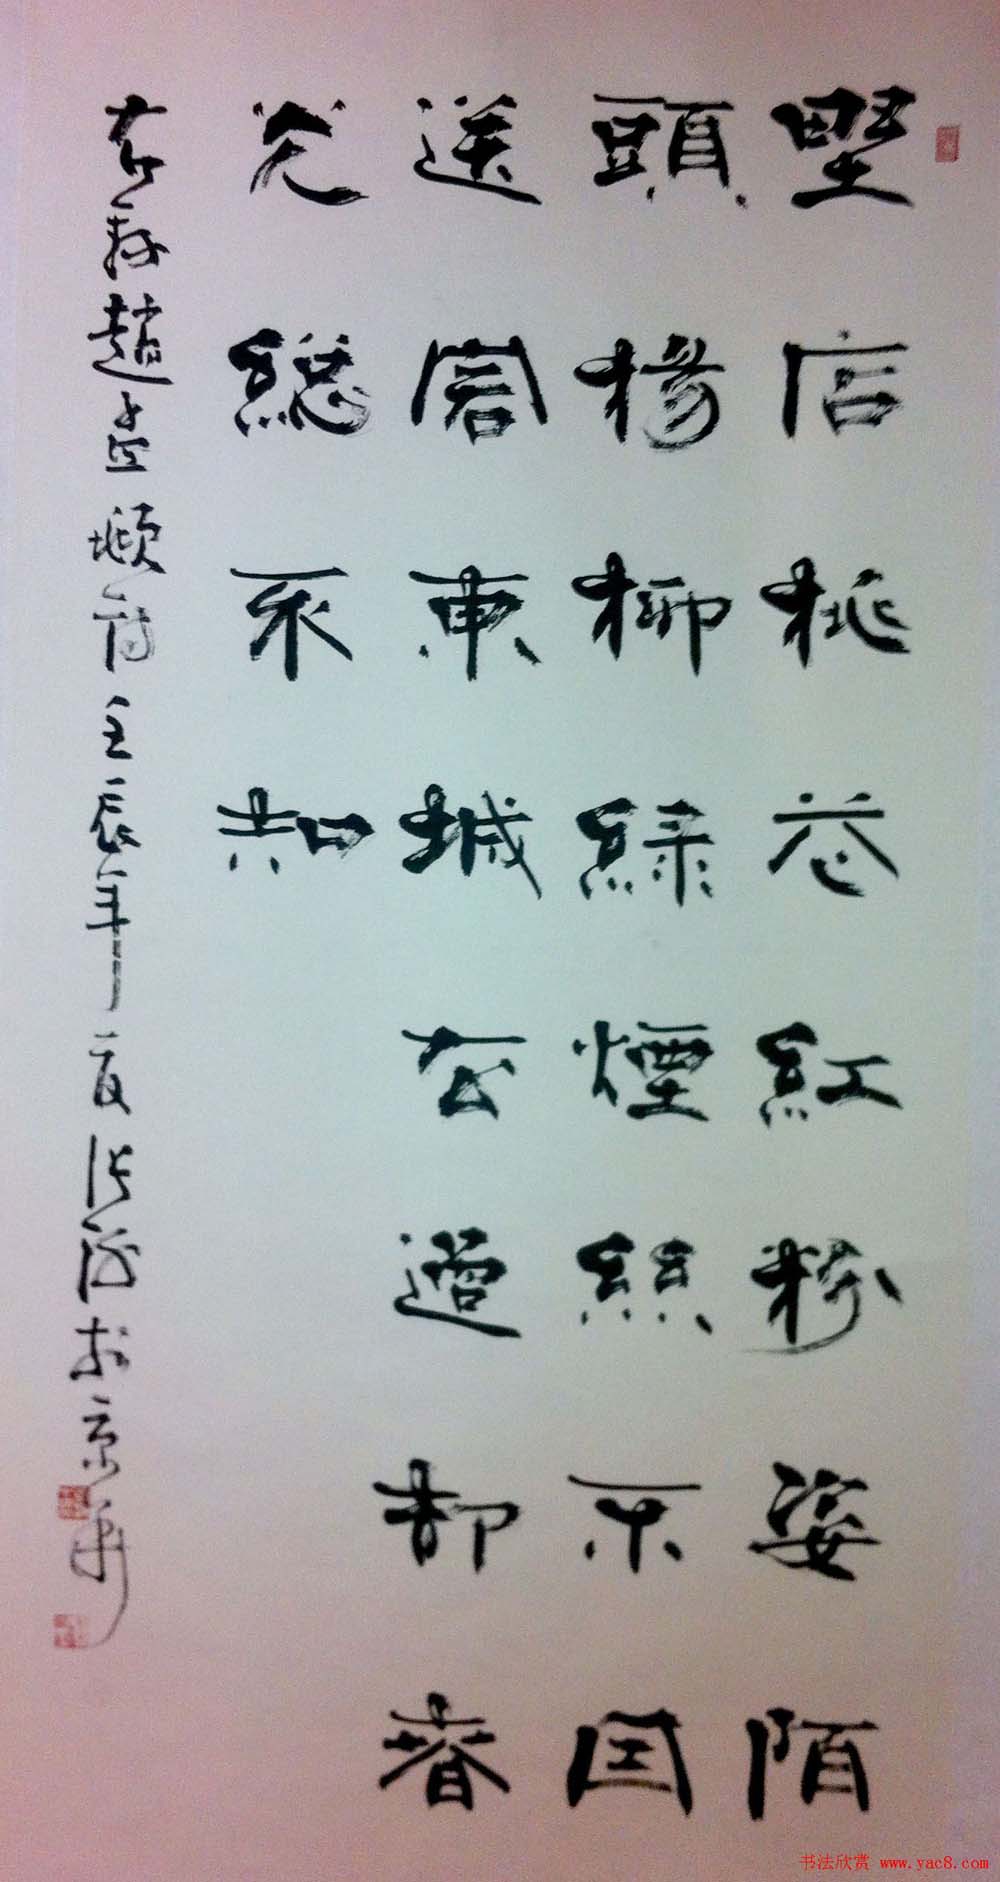 野店桃花紅粉姿陌
頭楊柳綠煙絲不因
送客東城去過却春
光總不知
右錄趙孟頫詩壬辰年夏於京華
书法欣赏 www.yac8.com